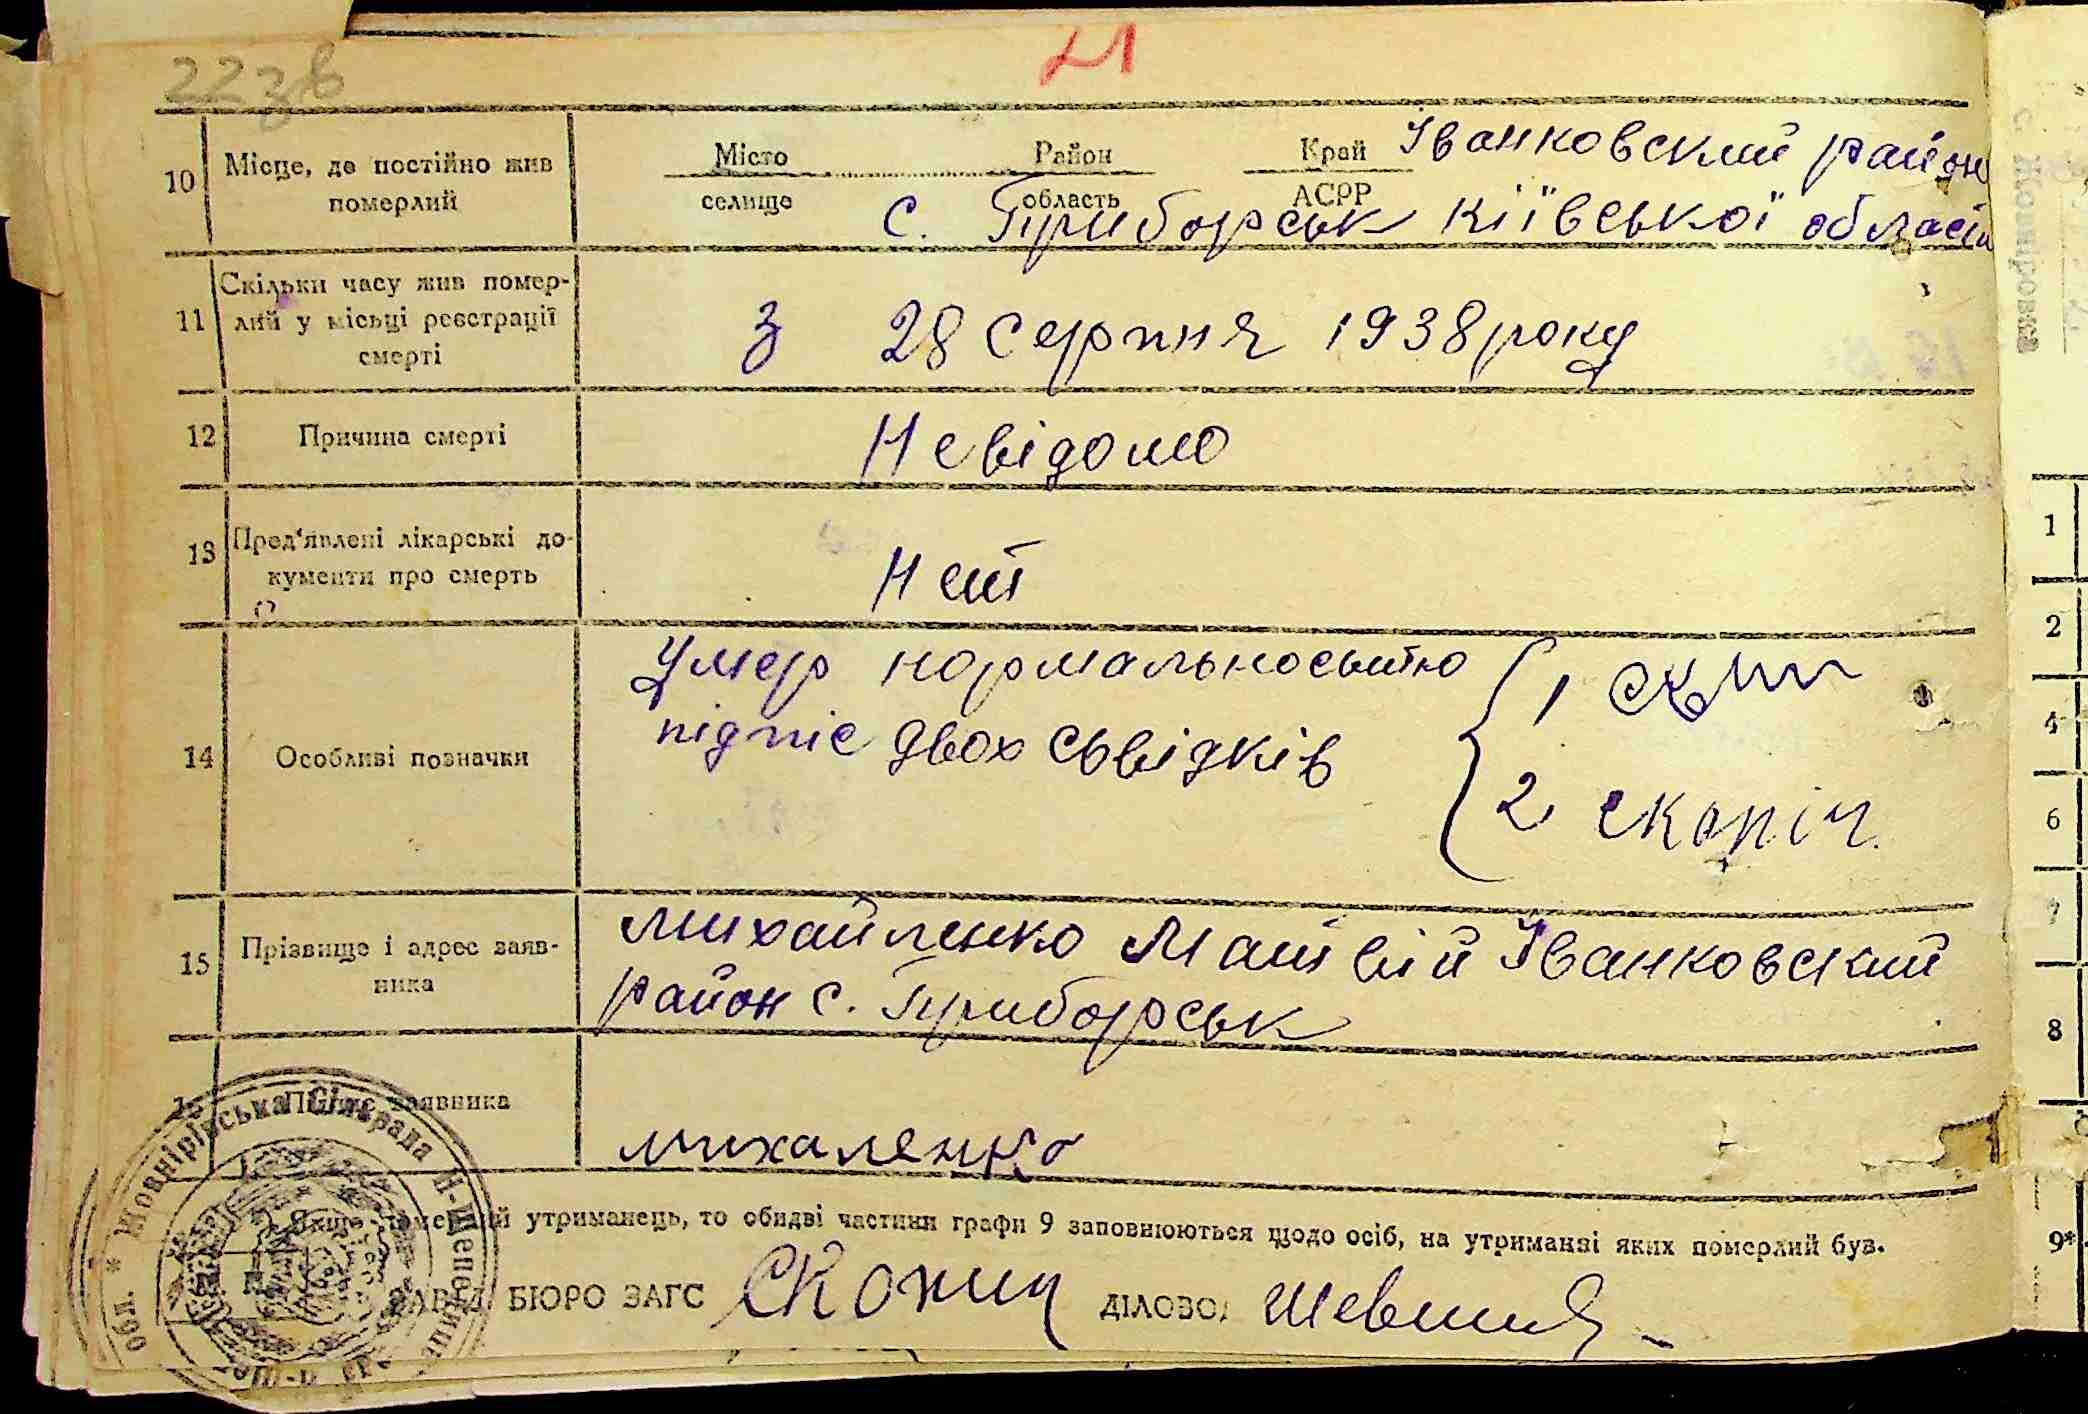 22 зв
21
10 Місце, де постійно жив померлий
Місто Район Край Іванковский район
селище область АСРР
с. Приборськ Кіївської області
11 Скільки часу жив помер-
лий у місьці реєстрації
смерті
з 28 серпня 1938 року
12 Причина смерті Невідомо
13 Пред'явлені лікарські до-
кументи про смерть
Нет
14 Особливі позначки
Умер нормальносьтю
підпіс двох сьвідків
1
2
15 Прізвище і адрес заяв-
ника
Михайленко Матвій Іванковский
район с. Приборськ
Підпис заявника
михаленко
Якщо померлий утриманець, то обидві частини графи 9 заповнюються щодо осіб, на утриманні яких померлий був.
ЗАВ. БЮРО ЗАГС ДІЛОВОД
* Жовнірівська Сільрада Н-Шепелице
обл.
с. Жовніровка
1
2
4
6
7
8
9*